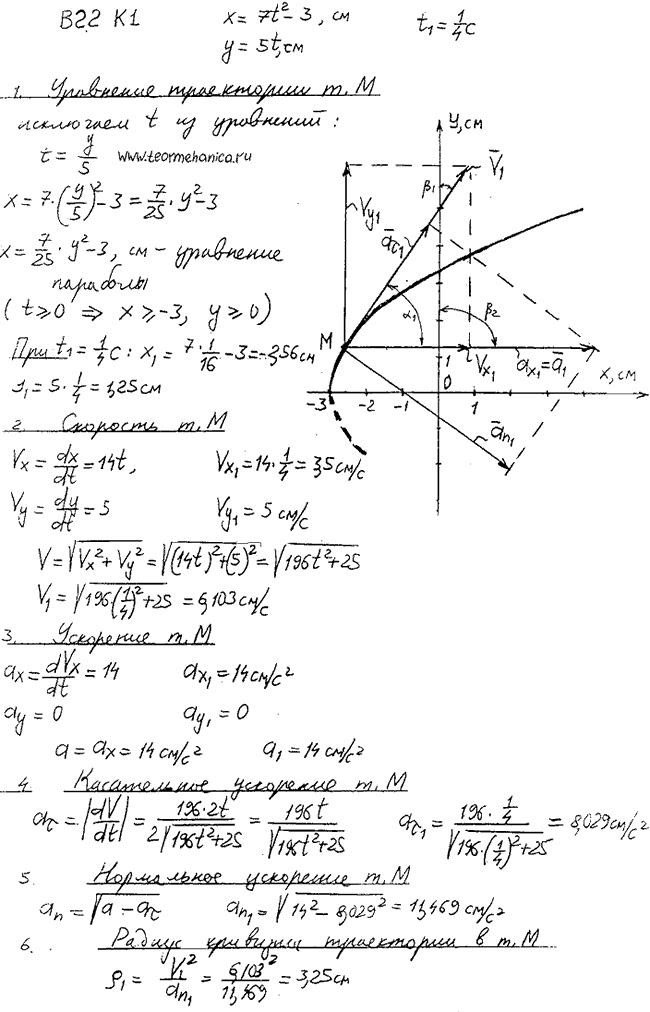 В22 К1 x = 7t² - 3, см t₁ = 1/4 c
y = 5t, см
1. Уравнение траектории т. М
исключаем t из уравнений:
t = y/5 www.teormehanica.ru
x = 7·(y/5)² - 3 = 7/25 · y² - 3
x = 7/25 · y² - 3, см - уравнение
параболы
(t ≥ 0 ⇒ x ≥ -3, y ≥ 0)
При t₁ = 1/4 c: x₁ = 7·1/16 - 3 = -2,56 см
y₁ = 5·1/4 = 1,25 см
y, см
V̄₁
β₁
Vy₁
āτ₁
α₁
β₂
M
Vx₁
āx₁ = ā₁
x, см
1
0
-3 -2 -1 1
ān₁
2. Скорость т. М
Vx = dx/dt = 14t, Vx₁ = 14·1/4 = 3,5 см/с
Vy = dy/dt = 5 Vy₁ = 5 см/с
V = √(Vx² + Vy²) = √((14t)² + (5)²) = √(196t² + 25)
V₁ = √(196·(1/4)² + 25) = 6,103 см/с
3. Ускорение т. М
ax = dVx/dt = 14 ax₁ = 14 см/с²
ay = 0 ay₁ = 0
a = ax = 14 см/с² a₁ = 14 см/с²
4. Касательное ускорение т. М
aτ = |dV/dt| = 196·2t/2√(196t² + 25) = 196t/√(196t² + 25) aτ₁ = 196·1/4/√(196·(1/4)² + 25) = 8,029 см/с²
5. Нормальное ускорение т. М
an = √(a - aτ) an₁ = √(14² - 8,029²) = 11,469 см/с²
6. Радиус кривизны траектории в т. М
ρ₁ = V₁²/an₁ = 6,103²/11,469 = 3,25 см